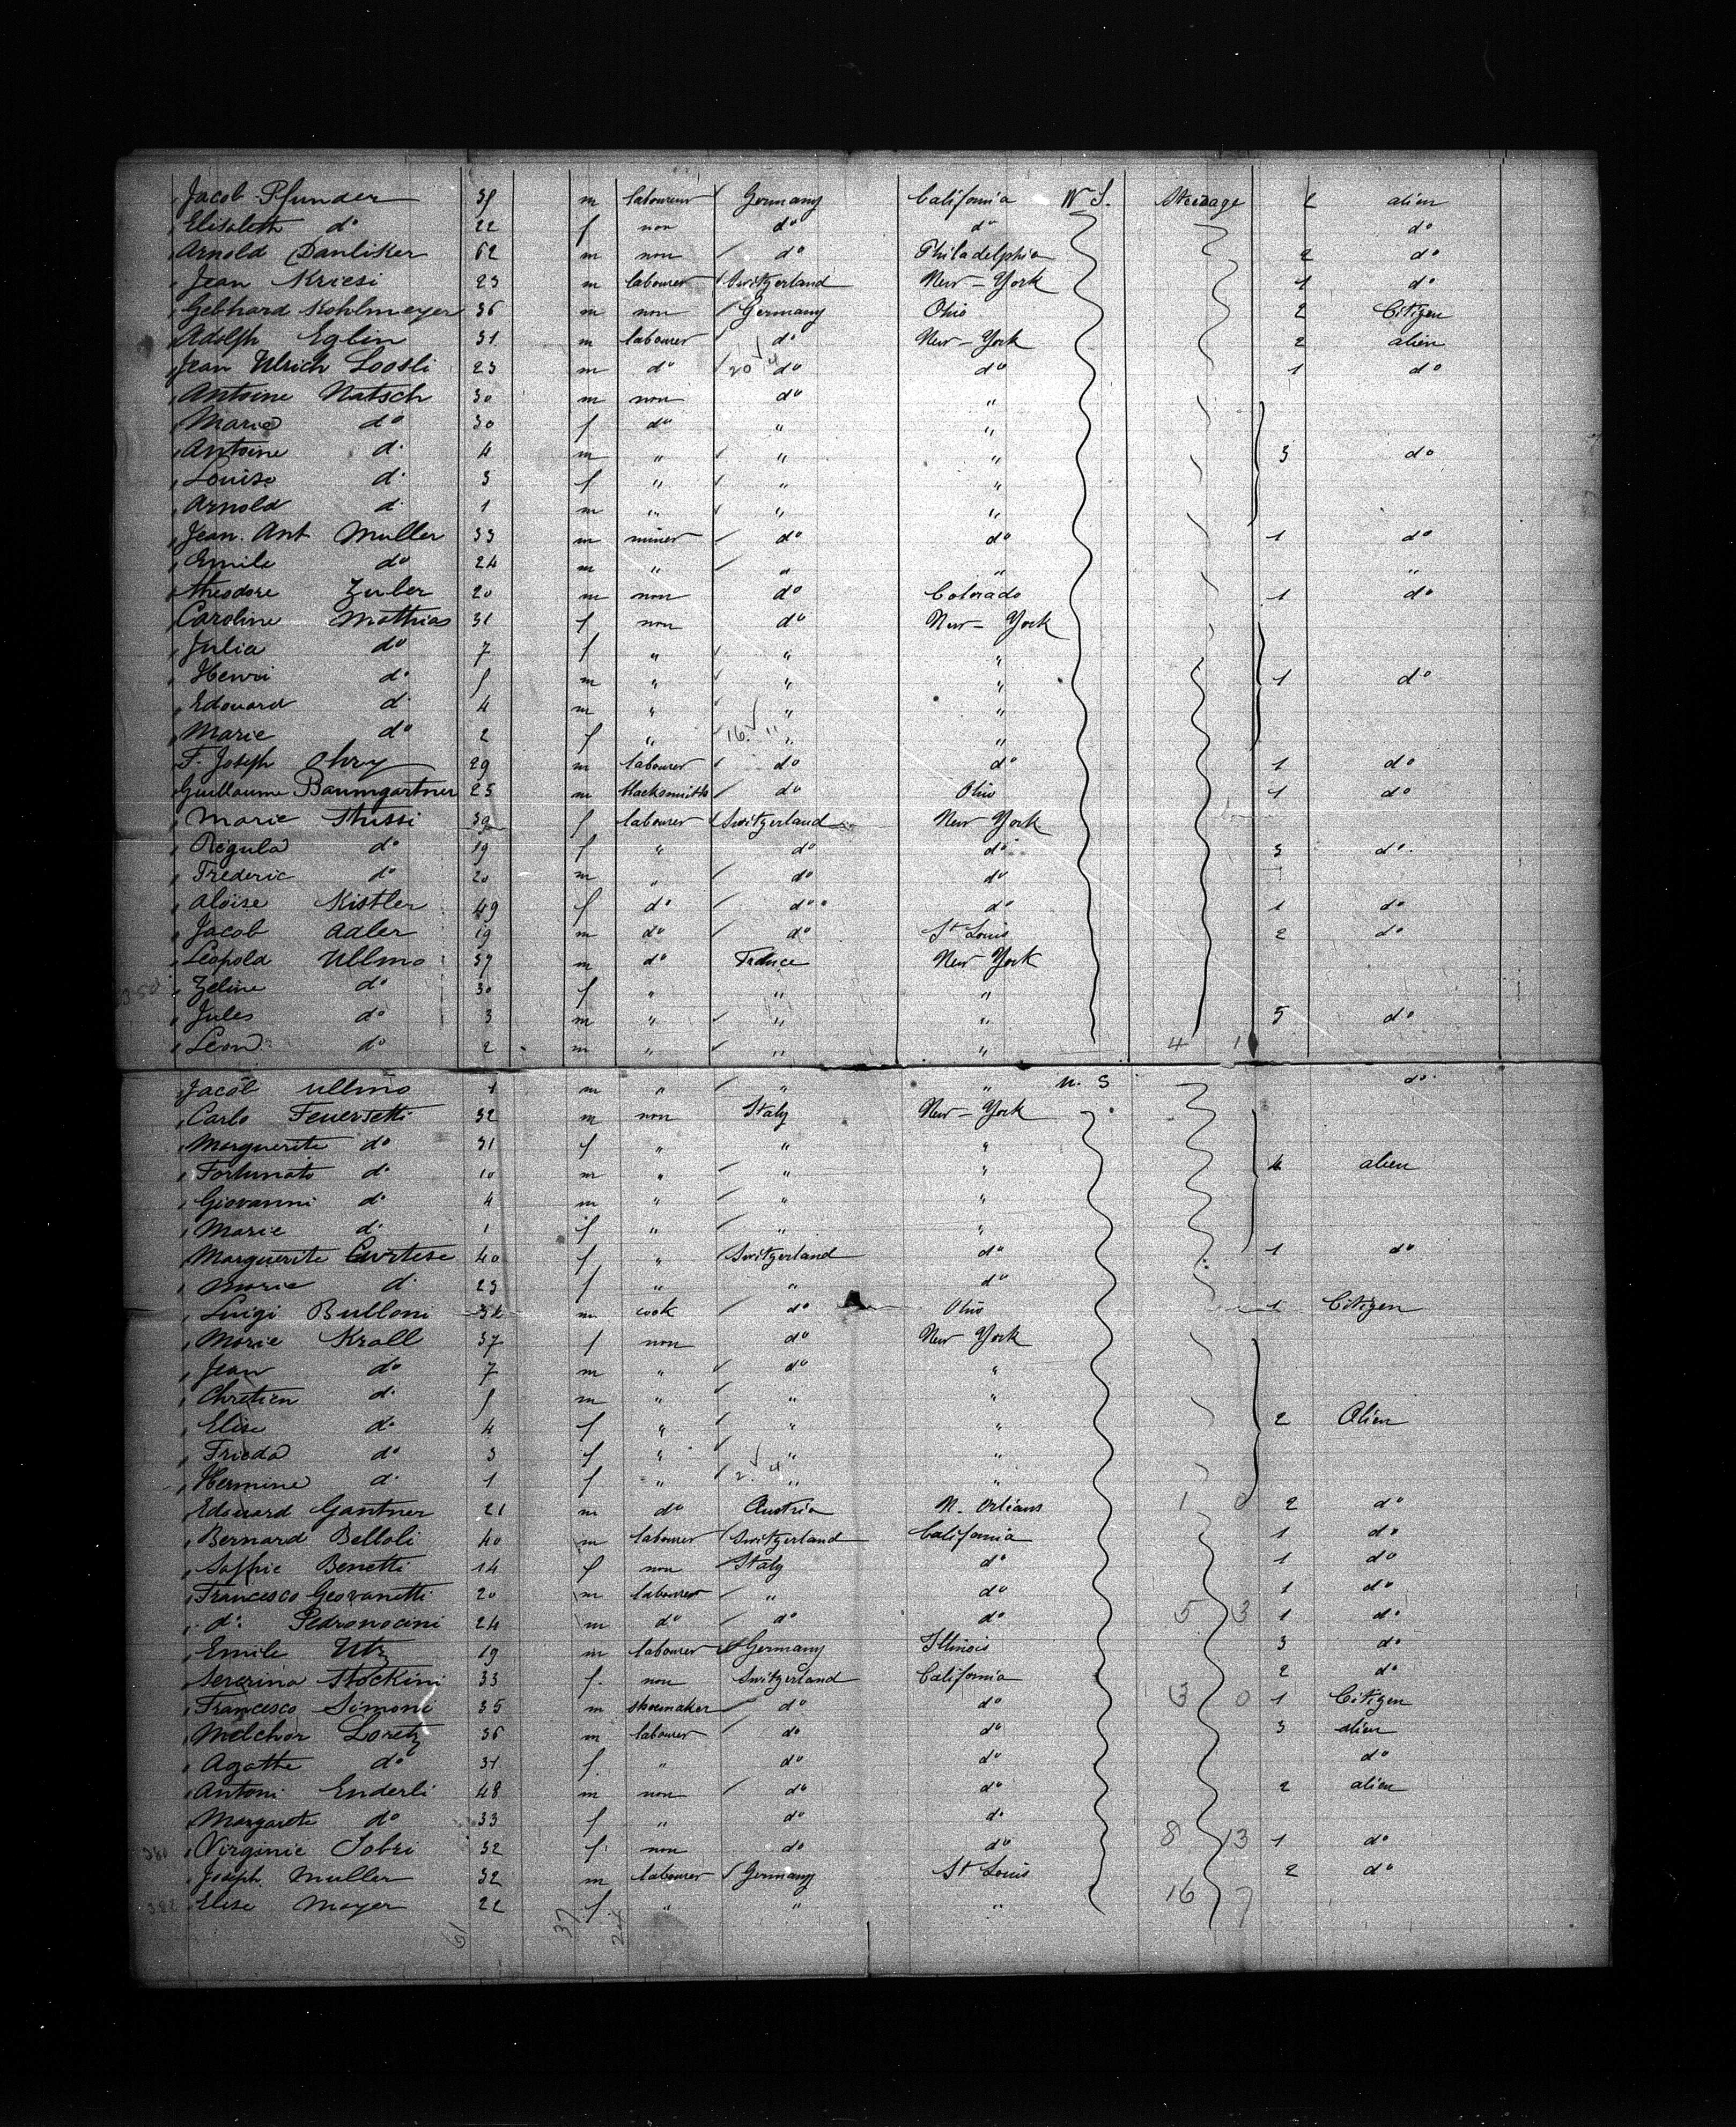 Jacob Pfunder 35 m labourer Germany California N S. Steerage 2 alien
Elisabeth do 22 f non do do do
Arnold Danliker 62 m non do Philadelphia 2 do
Jean Kriesi 23 m labourer Switzerland New-York 1 do
Gebhard Kohlmeyer 36 m non Germany Ohio 2 Citizen
Adolph Eglin 31 m labourer do New-York 2 alien
Jean Ulrich Loosli 23 m do 20 4 do do 1 do
Antoine Natsch 30 m non do "
Marie do 30 f do " "
Antoine do 4 m " " " 3 do
Louise do 3 f " " "
Arnold do 1 m " " "
Jean. Ant Muller 33 m miner do do 1 do
Emile do 24 m " " " "
Theodore Zuber 20 m non do Colorado 1 do
Caroline Mathias 31 f non do New-York
Julia do 7 f " " "
Henri do 5 m " " " 1 do
Edouard do 4 m " " "
Marie do 2 f " 16 11 " "
F. Joseph Ohry 29 m labourer do do 1 do
Guillaume Baumgartner 25 m blacksmith do Ohio 1 do
Marie Stussi 39 f labourer Switzerland New York
Regula do 19 f " do do 3 do.
Frederic do 20 m " do do
Aloise Kistler 49 f do do do 1 do
Jacob Adler 19 m do do St Louis 2 do
Leopold Ullmo 37 m do France New York
350 Zeline do 30 f " " "
Jules do 3 m " " " 5 do
Leon do 2 m " " " 4 1
Jacob Ullmo 1 m " " " N. S do.
Carlo 32 m non Italy New-York
Marguerite do 31 f " " "
Fortunato do 10 m " " " 4 alien
Giovanni do 4 m " " "
Marie do 1 f " " "
Marguerite Curtese 40 f " Switzerland do 1 do
Marie d 23 f " " do
Luigi Bulloni m cook do Ohio 1 Citizen
Marie Krall 37 f non do New York
Jean do 7 m " do "
Chretien do 5 m " " "
Elise do 4 f " " " 2 Alien
Frieda do 3 f " " "
Hermine do 1 f " 2 4 " "
Edouard Gantner 21 m do Austria N. Orléans 1 0 2 do
Bernard Belloli 40 m labourer Switzerland California 1 do
Saffie Benetti 14 f non Italy do 1 do
Francesco Geovanetti 20 m labourer " do 1 do
do: Pedronocini 24 m do do do 5 3 1 do
Emile Utz 19 m labourer Germany Illinois 3 do
Sererina Stockini 33 f. non Switzerland California 2 do
Francesco Simoni 35 m shoemaker do do 3 0 1 Citizen
Melchor Loretz 36 m labourer do do 3 alien
Agathe do 31 f. " do do do
Antoni Enderli 48 m non do do 2 alien
Margarete do 33 f " do do
Virginie Sobri 32 f. non do do 8 13 1 do
Joseph Muller 32 m labourer Germany St Louis 2 do
382 Elise Mayer 22 f. " " " 16 7
61 37 24